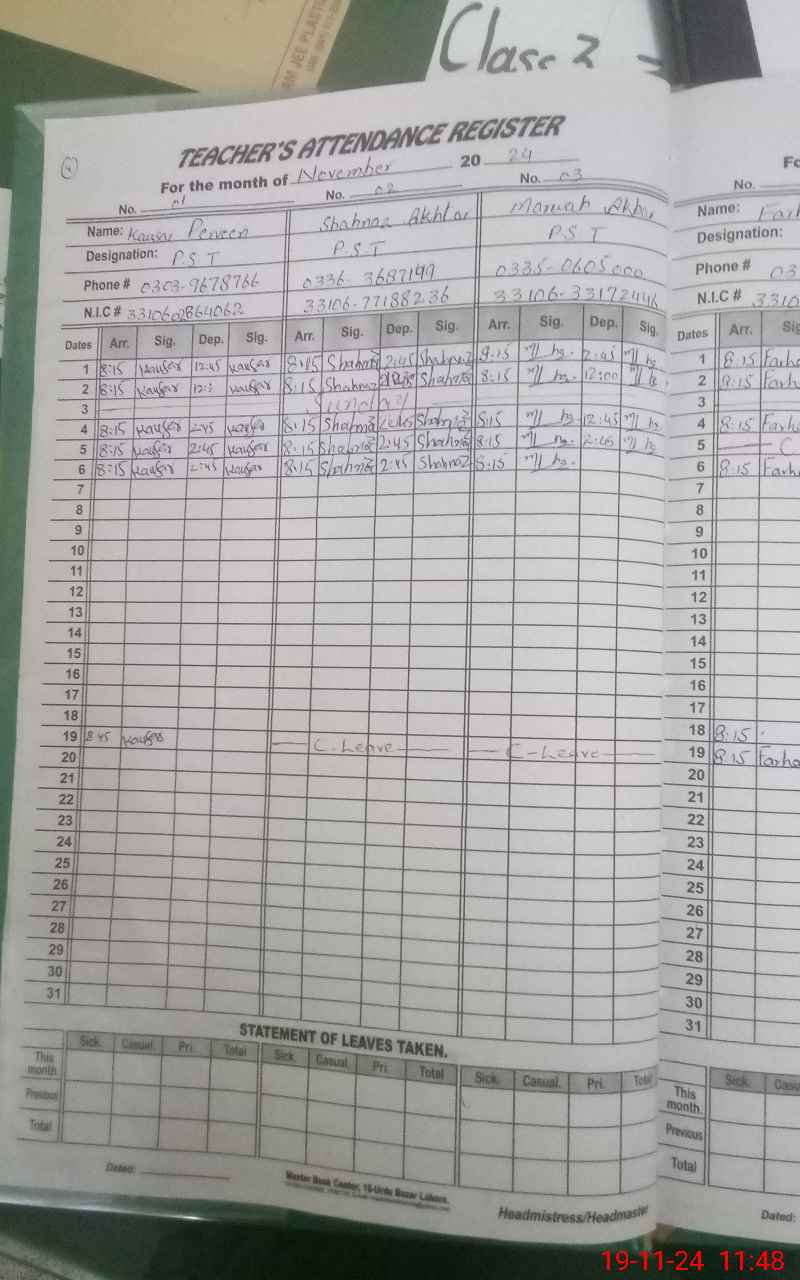 Class 2
AM JEE PLASTIC
TEACHER'S ATTENDANCE REGISTER
For the month of November 20 24
No. 01 No. 02 No. 03
Name: Kausar Perveen Shahnaz Akhtar Marwah Akbar
Designation: P.S.T P.S.T P.S.T
Phone # 0303-9678766 0336-3687199 0335-0605000
N.I.C # 3310602864062 33106-77188236 33106-33172446
Dates Arr. Sig. Dep. Sig. Arr. Sig. Dep. Sig. Arr. Sig. Dep. Sig.
1 8:15 Kausar 12:45 Kausar 8:15 Shahnaz 2:45 Shahnaz 8:15 2:45
2 8:15 Kausar Kausar 8:15 Shahnaz Shahnaz 8:15 12:00
3 Sunday
4 8:15 Kausar 2:45 Kausar 8:15 Shahnaz 2:45 Shahnaz 8:15 12:45
5 8:15 Kausar 2:45 Kausar 8:15 Shahnaz 2:45 Shahnaz 8:15 2:45
6 8:15 Kausar 2:45 Kausar 8:15 Shahnaz 2:45 Shahnaz 8:15
7
8
9
10
11
12
13
14
15
16
17
18
19 8:45 Kausar C.Leave C-Leave
20
21
22
23
24
25
26
27
28
29
30
31
STATEMENT OF LEAVES TAKEN.
Sick. Casual. Pri. Total Sick. Casual. Pri. Total Sick. Casual. Pri. Total
This month.
Previous
Total
Dated:
Master Book Center, 16-Urdu Bazar Lahore.
Headmistress/Headmaster
Fo
No.
Name: Farh
Designation:
Phone # 03
N.I.C # 3310
Dates Arr. Sig
1 8:15 Farha
2 8:15 Farha
3
4 8:15 Farha
5 C
6 8:15 Farha
7
8
9
10
11
12
13
14
15
16
17
18 8:15
19 8:15 Farha
20
21
22
23
24
25
26
27
28
29
30
31
Sick. Casu
This month.
Previous
Total
Dated:
19-11-24 11:48